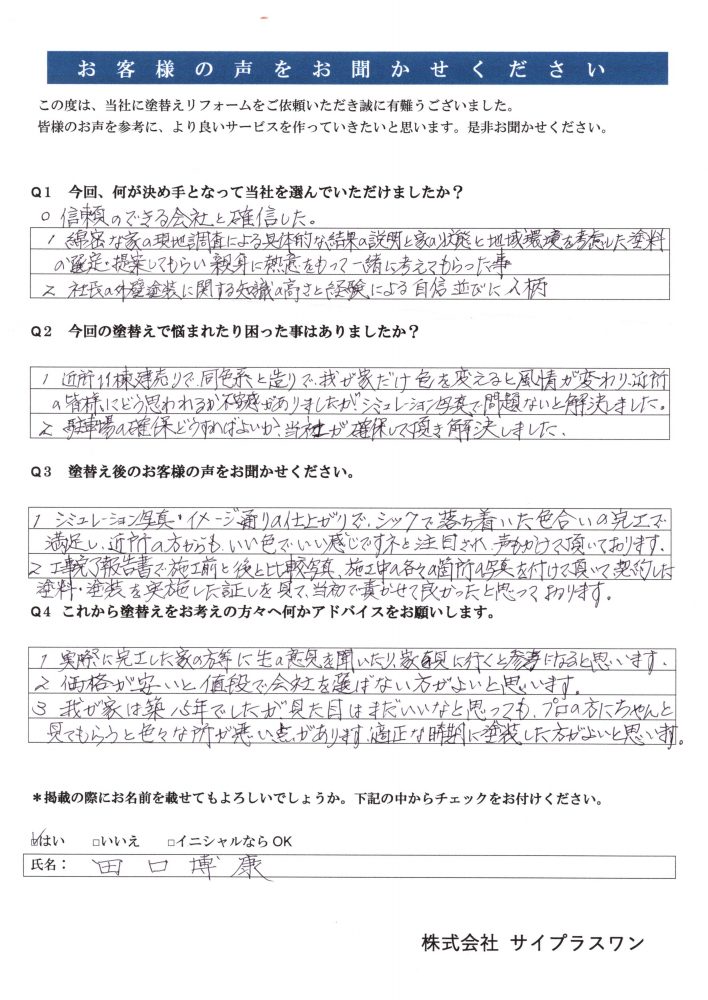 お客様の声をお聞かせください
この度は、当社に塗替えリフォームをご依頼いただき誠に有難うございました。
皆様のお声を参考に、より良いサービスを作っていきたいと思います。是非お聞かせください。
Q1 今回、何が決め手となって当社を選んでいただけましたか？
○ 信頼のできる会社と確信した。
1 綿密な家の現地調査による具体的な結果の説明と家の状態と地域環境を考慮した塗料
の選定・提案してもらい親身に熱意をもって一緒に考えてもらった事
2 社長の外壁塗装に関する知識の高さと経験による自信並びに人柄
Q2 今回の塗替えで悩まれたり困った事はありましたか？
1 近所11棟建売りで、同色系と造りで、我が家だけ色を変えると風情が変わり、近所
の皆様にどう思われるか不安感がありましたが、シミュレーション写真で問題ないと解決しました。
2 駐車場の確保どうすればよいか、当社が確保して頂き解決しました。
Q3 塗替え後のお客様の声をお聞かせください。
1 シミュレーション写真・イメージ通りの仕上がりで、シックで落ち着いた色合いの完工で
満足し、近所の方からも、いい色でいい感じですネと注目され、声もかけて頂いております。
2 工事完了報告書で施工前と後と比較写真、施工中の各々の箇所の写真を付けて頂いて契約した
塗料・塗装を実施した証しを見て、当初で貴かせて良かったと思っております。
Q4 これから塗替えをお考えの方々へ何かアドバイスをお願いします。
1 実際に完工した家の方等に生の意見を聞いたり、家を見に行くと参考になると思います。
2 価格が安いと、値段で会社を選ばない方がよいと思います。
3 我が家は築15年でしたが見た目はまだいいなと思っても、プロの方にちゃんと
見てもらうと色々な所が悪い点があります。適正な時期に塗装した方がよいと思います。
＊掲載の際にお名前を載せてもよろしいでしょうか。下記の中からチェックをお付けください。
☑はい □いいえ □イニシャルならOK
氏名： 田口博康
株式会社 サイプラスワン